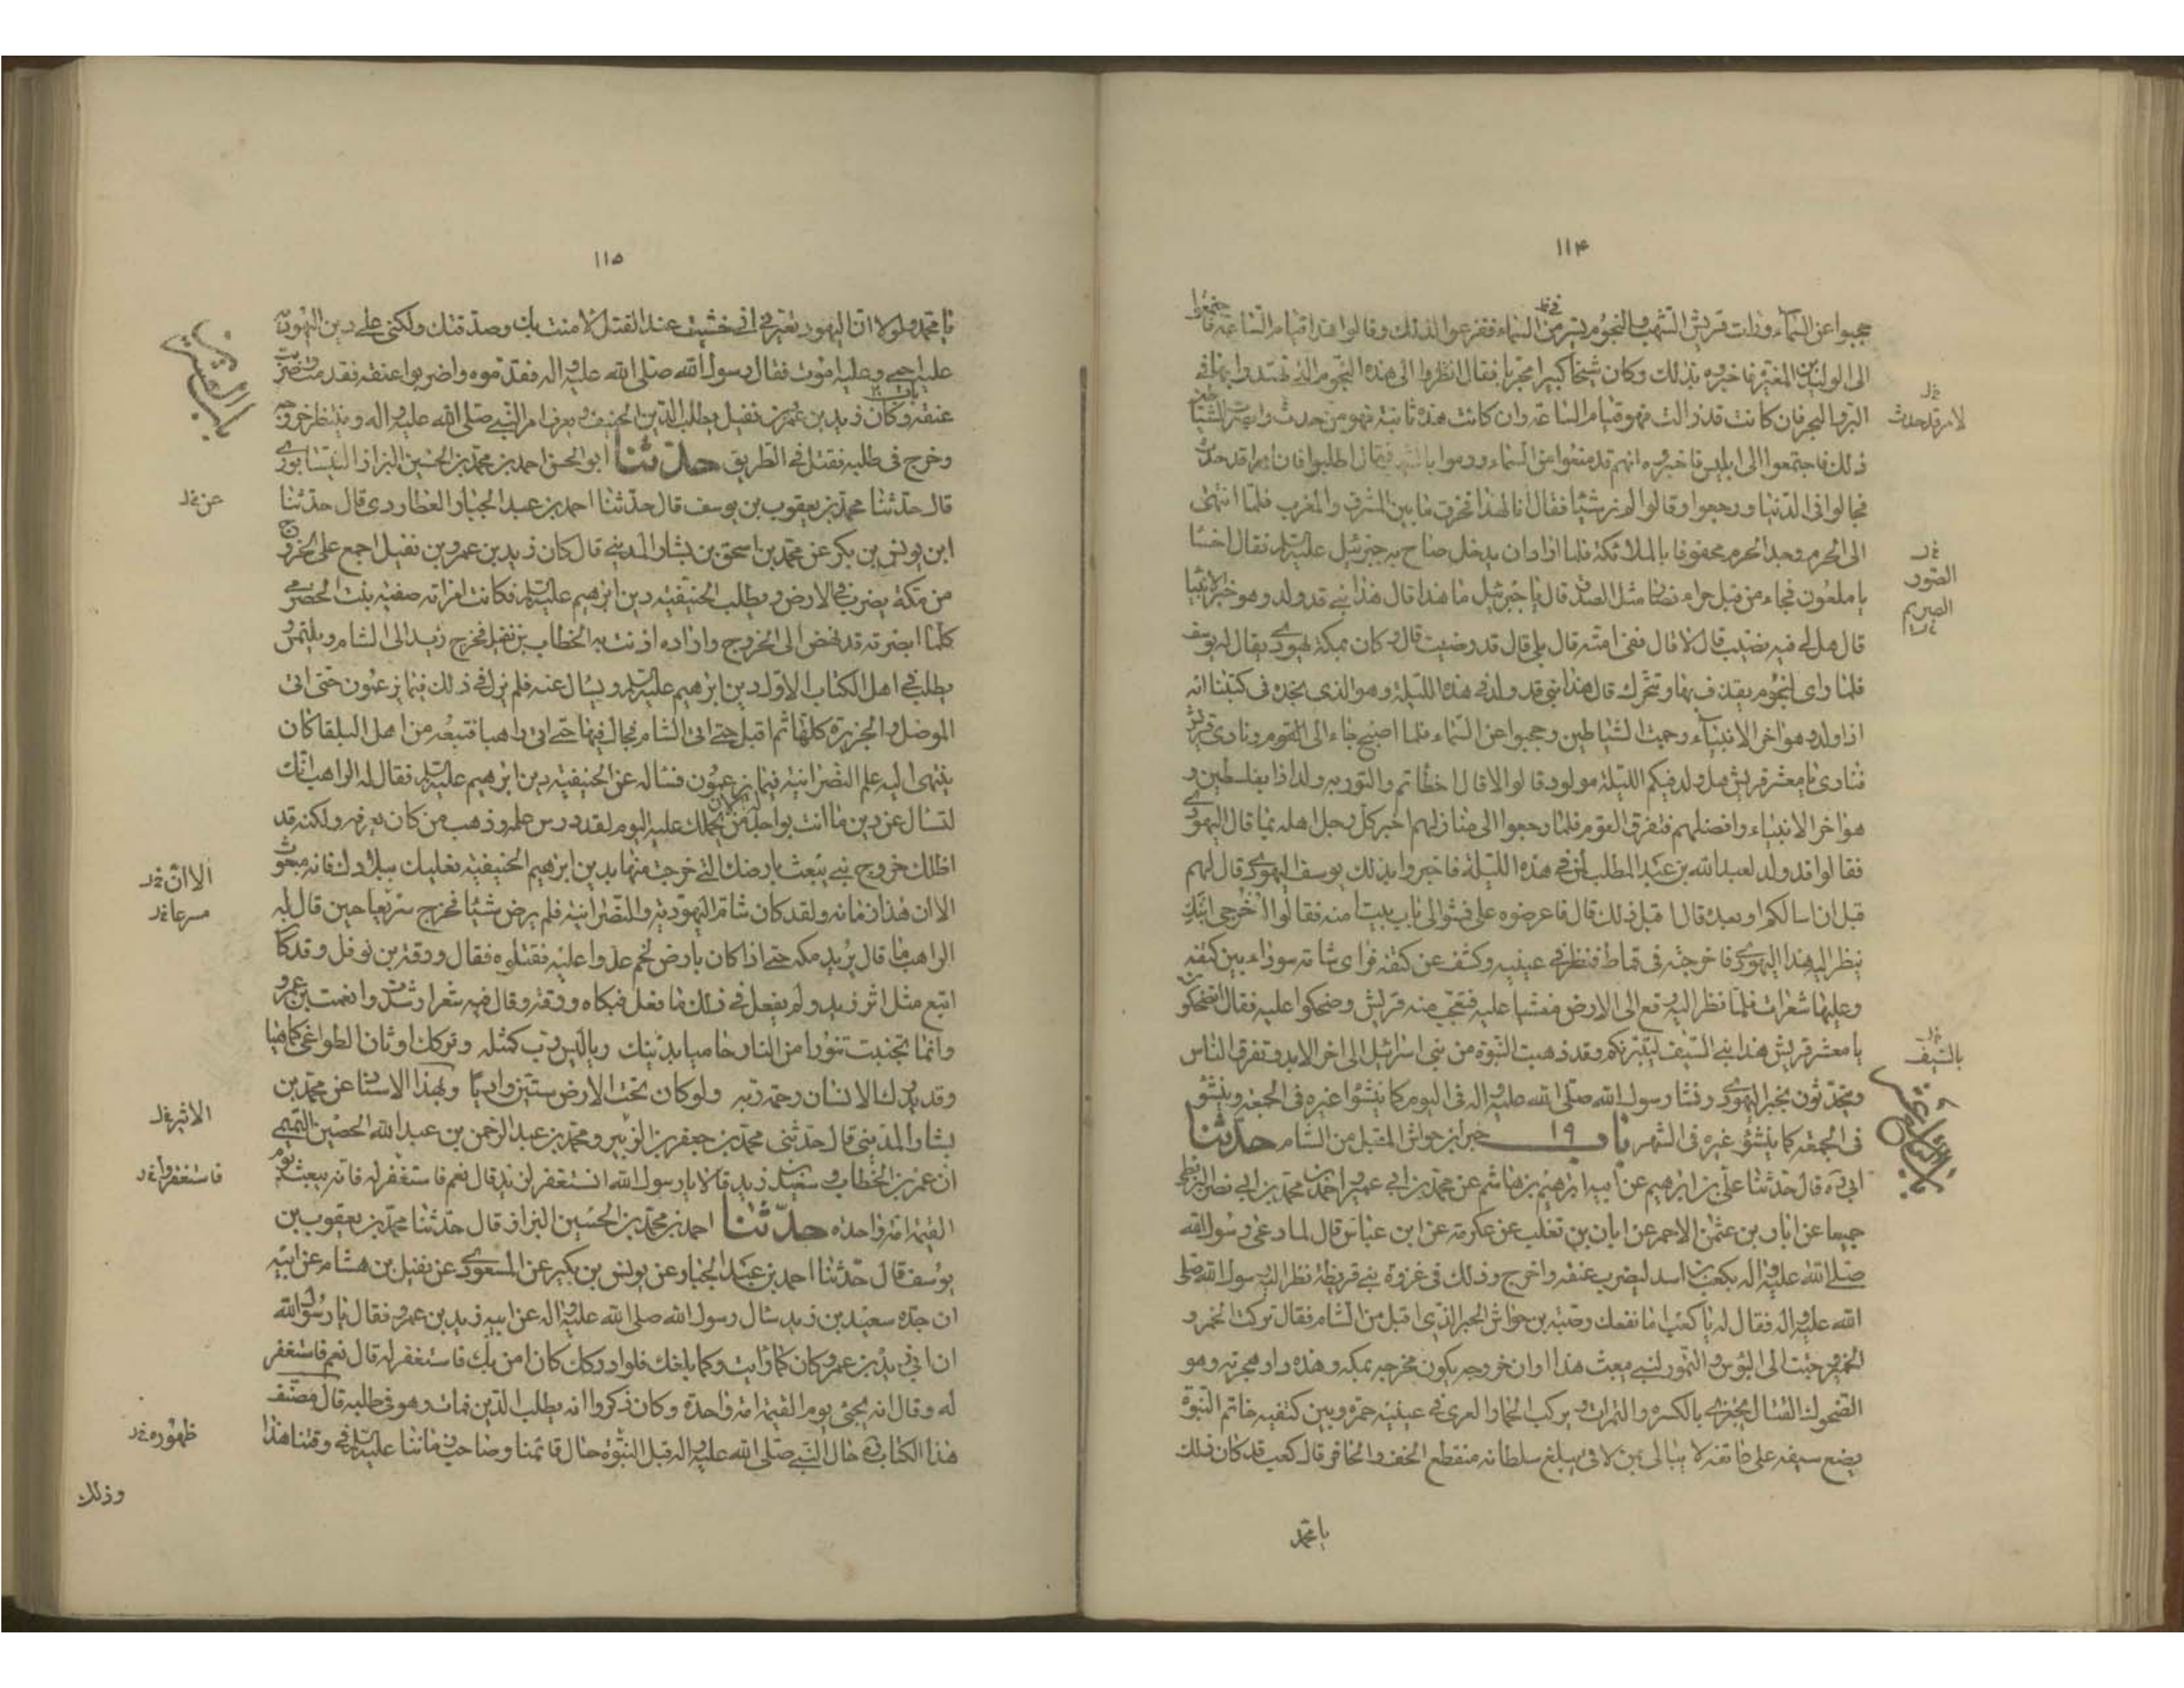 ١١۴
حجبوا عن السماء ورات قريش الشهب والنجوم يسير من السماء ففزعوا لذلك وقالوا هذا قيام الساعة فاجتمعوا
الى الوليد بن المغيرة فاخبروه بذلك وكان شيخا كبيرا مجربا فقال انظروا الى هذه النجوم التي تهتدوا بها في
البر والبحر فان كانت قد زالت فهو قيام الساعة وان كانت هذه ثابتة فهو من حدث وابصرت الشياطين
ذلك فاجتمعوا الى ابليس فاخبروه انهم قد منعوا من السماء ورموا بالشهب فقال اطلبوا فان امرا قد حدث
فجالوا في الدنيا ورجعوا وقالوا لم نر شيئا فقال انا لهذا فخرق ما بين المشرق والمغرب فلما انتهى
الى الحرم وجد الحرم محفوفا بالملائكة فلما اراد ان يدخل صاح به جبرئيل عليه السلم فقال اخسأ
يا ملعون فجاء من قبل حراء فصار مثل الصرد قال يا جبرئيل ما هذا قال هذا نبي قد ولد وهو خير الانبياء
قال هل لي فيه نصيب قال لا قال ففي امته قال بلى قال قد رضيت قال وكان بمكة يهودي يقال له يوسف
فلما راى النجوم يقذف بها وتتحرك قال هذا نبي قد ولد في هذه الليلة وهو الذي نجده في كتبنا انه
اذا ولد وهو اخر الانبياء رجمت الشياطين وحجبوا عن السماء فلما اصبح جاء الى القوم ونادى قريش
فنادى يا معشر قريش هل ولد فيكم الليلة مولود قالوا لا قال اخطأتم والتورية ولد اذا بفلسطين و
هو اخر الانبياء وافضلهم فتفرق القوم فلما رجعوا الى منازلهم اخبر كل رجل اهله بما قال اليهودي
فقالوا قد ولد لعبد الله بن عبد المطلب ابن في هذه الليلة فاخبروا بذلك يوسف اليهودي قال لهم
قبل ان اسالكم او بعده قالوا قبل ذلك قال فاعرضوه علي فمشوا الى باب بيت امنه فقالوا اخرجي ابنك
ينظر اليه هذا اليهودي فاخرجته في قماط فنظر في عينيه وكشف عن كتفه فراى شامة سوداء بين كتفيه
وعليها شعرات فلما نظر اليه وقع الى الارض مغشيا عليه فتعجب منه قريش وضحكوا عليه فقال اتضحكون
يا معشر قريش هذا نبي السيف ليبترنكم وقد ذهبت النبوة من بني اسرائيل الى اخر الابد وتفرق الناس
ويحدثون بخبر اليهودي ونشا رسول الله صلى الله عليه واله في اليوم كما ينشؤا غيره في الجمعة وينشؤ
في الجمعة كما ينشؤ غيره في الشهر باب ١٩ خبر ابن حواش المقبل من الشام حدثنا
ابي ره قال حدثنا علي بن ابرهيم عن ابيه ابرهيم بن هاشم عن محمد بن ابي عمير واحمد بن محمد بن ابي نصر البزنطي
جميعا عن ابان بن عثمن الاحمر عن ابان بن تغلب عن عكرمة عن ابن عباس قال لما دعى رسول الله
صلى الله عليه واله بكعب بن اسد ليضرب عنقه واخرج وذلك في غزوة بني قريظة نظر اليه رسول الله صلى
الله عليه واله فقال له يا كعب اما نفعك وصية بن حواش الحبر الذي اقبل من الشام فقال تركت الخمر و
الخمير وجئت الى البؤس والتمور لنبي يبعث هذا اوان خروجه يكون مخرجه بمكة وهذه دار هجرته وهو
الضحوك القتال يجتزي بالكسرة والتمرات ويركب الحمار العري في عينيه حمرة وبين كتفيه خاتم النبوة
يضع سيفه على عاتقه لا يبالي بمن لاقى يبلغ سلطانه منقطع الخف والحافر قال كعب قد كان ذلك
يا محمد
لامر قد حدث
الصور
الصريم
بالسيف
١١٥
يا محمد ولولا ان اليهود تعيرني اني خشيت عند القتل لامنت بك وصدقتك ولكني على دين اليهودية
عليه احيى وعليه اموت فقال رسول الله صلى الله عليه واله فقدموه واضربوا عنقه فقدمت وضربت
عنقه باب ٢٠ وكان زيد بن عمرو بن نفيل يطلب الدين الحنيف ويعرف امر النبي صلى الله عليه واله وينتظر خروجه
وخرج في طلبه فقتل في الطريق حدثنا ابو الحسن احمد بن محمد بن الحسين البزاز النيسابوري
قال حدثنا محمد بن يعقوب بن يوسف قال حدثنا احمد بن عبد الجبار العطاردي قال حدثنا
ابن يونس بن بكر عن محمد بن اسحق بن بشار المديني قال كان زيد بن عمرو بن نفيل اجمع على الخروج
من مكة يضرب في الارض ويطلب الحنيفية دين ابرهيم عليه السلم فكانت امراته صفية بنت الحضرمي
كلما ابصرته قد نهض الى الخروج واراده اذنت به الخطاب بن نفيل فخرج زيد الى الشام ويلتمس و
يطلب في اهل الكتاب الاول دين ابرهيم عليه السلم ويسال عنه فلم يزل في ذلك فيما يزعمون حتى اتى
الموصل والجزيرة كلها ثم اقبل حتى اتى الشام فجال فيها حتى اتى راهبا فتبعه من اهل البلقا كان
ينتهى اليه علم النصرانية فيما يزعمون فساله عن الحنيفية دين ابرهيم عليه السلم فقال له الراهب انك
لتسال عن دين ما انت بواجد له الان من يحملك عليه اليوم لقد درس علمه وذهب من كان يعرفه ولكنه قد
اظلك خروج نبي يبعث بارضك التي خرجت منها بدين ابرهيم الحنيفية فعليك ببلادك فانه مبعوث
الان هذا زمانه ولقد كان شام اليهودية والنصرانية فلم يرض شيئا فخرج سريعا حين قال له
الراهب ما قال يريد مكة حتى اذا كان بارض لخم عدوا عليه فقتلوه فقال ورقة بن نوفل وقد كان
اتبع مثل اثر زيد ولم يفعل في ذلك ما فعل فبكاه ورقة وقال فيه شعرا رشدت وانعمت بن عمرو
وانما تجنبت تنورا من النار حاميا بدينك ربا ليس رب كمثله وتركك اوثان الطواغي كما هيا
وقد يدرك الانسان رحمة ربه ولو كان تحت الارض ستين واديا وبهذا الاسناد عن محمد بن
بشار المديني قال حدثني محمد بن جعفر بن الزبير ومحمد بن عبد الرحمن بن عبد الله الحصين التميمي
ان عمر بن الخطاب وسعيد بن زيد قالا يا رسول الله انستغفر لزيد قال نعم فاستغفر له فانه يبعث يوم
القيمة امة واحدة حدثنا احمد بن محمد بن الحسين البزاز قال حدثنا محمد بن يعقوب بن
يوسف قال حدثنا احمد بن عبد الجبار عن يونس بن بكير عن المسعودي عن نفيل بن هشام عن ابيه
ان جده سعيد بن زيد سال رسول الله صلى الله عليه واله عن ابيه زيد بن عمرو فقال يا رسول الله
ان ابي زيد بن عمرو كان كما رايت وكما بلغك فلو ادركك كان امن بك فاستغفر له قال نعم فاستغفر
له وقال انه يجئ يوم القيمة امة واحدة وكان ذكروا انه يطلب الدين فمات وهو في طلبه قال مصنف
هذا الكتاب ره حال النبي صلى الله عليه واله قبل النبوة حال قائمنا وصاحب زماننا عليه السلم في وقتنا هذا
وذلك
باب العشرين
الا ان
مسرعا
الاثير
فاستغفروا
ظهوره